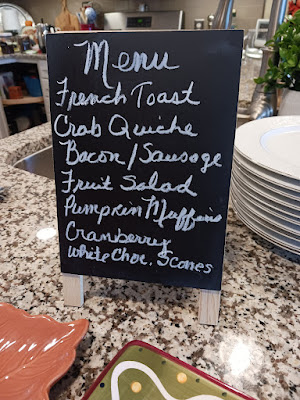 Menu
French Toast
Crab Quiche
Bacon/Sausage
Fruit Salad
Pumpkin Muffins
Cranberry
White Choc. Scones